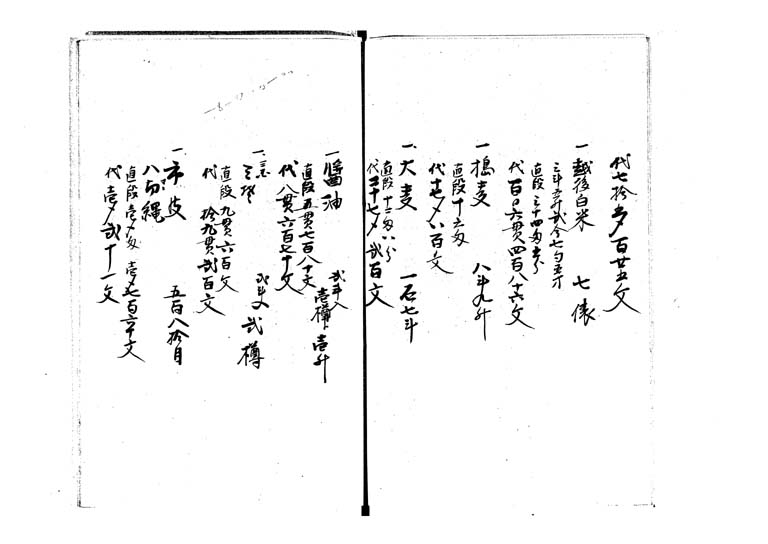 代七拾夕百廿五文
一越後白米 七俵
三斗五升弐合七勺五才
直段三十四匁
代百六貫四百八十六文
一搗麦 八斗九升
直段十六匁
代十七夕八百文
一大麦 一石七斗
直段十二匁八分
代二十七夕弐百文
一醤油 弐斗入 壱樽ト壱升
直段五貫七百八十文
代八貫六百七十文
一 弐斗入 弐樽
直段九貫六百文
代拾九貫弐百文
一 五百八拾目
縄
直段壱夕匁 壱夕七百六十文
代壱夕弐十一文